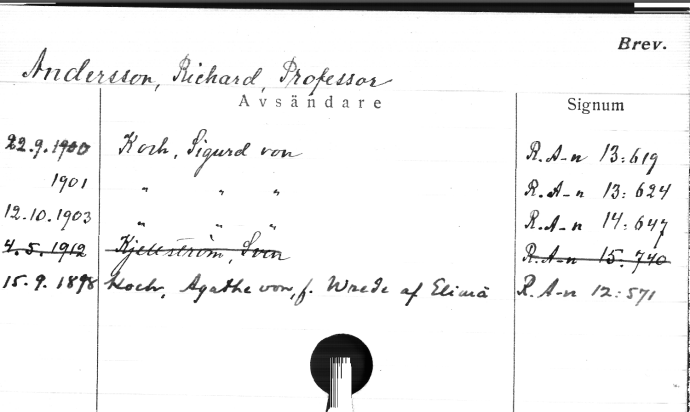 Brev.
Andersson, Richard, Professor
Avsändare Signum
22.9.1900 Koch, Sigurd von R. A-n 13:619
1901 " " " R. A-n 13:624
12.10.1903 " " " R. A-n 14:647
4.5.1912 Kjellström, Sven R. A-n 15.740
15.9.1898 Koch, Agathe von, f. Wrede af Elimä R. A-n 12:571